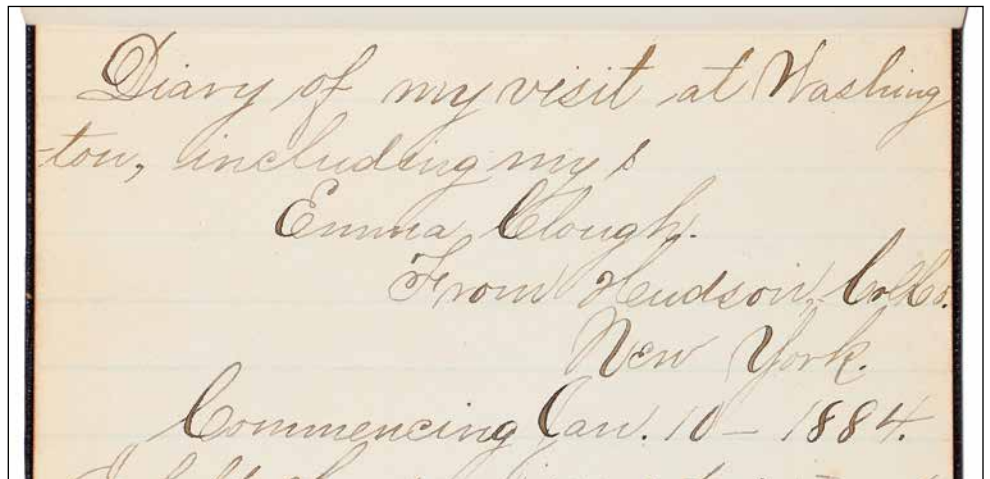 Diary of my visit at Washing
-ton, including my s
Emma Clough.
From Hudson, Col Co.
New York.
Commencing Jan. 10 - 1884.